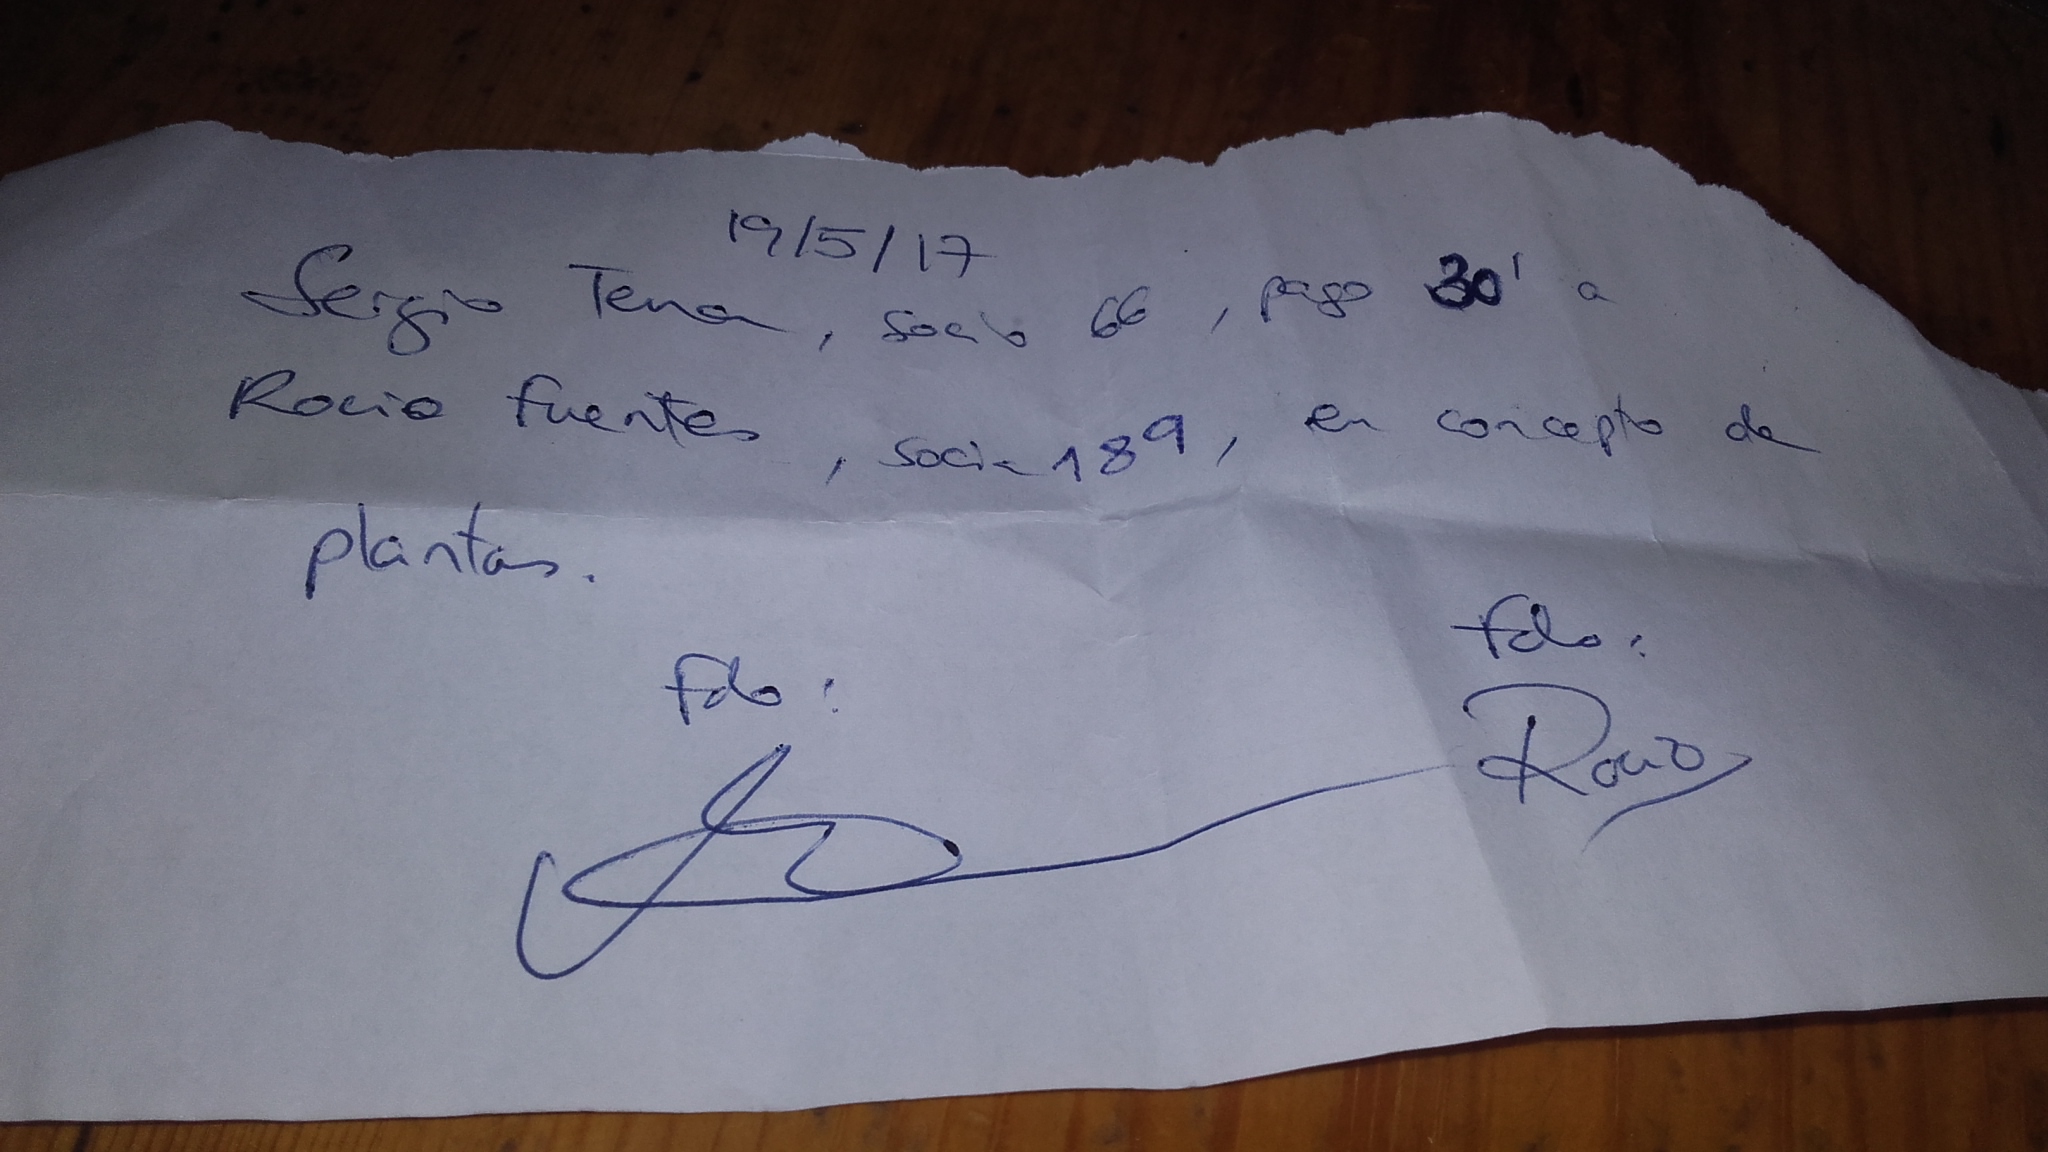 19/5/17
Sergio Tena, socio 66, pago 30' a
Rocio Fuentes, socia 189, en concepto de
plantas.
Fdo:
Fdo:
Rocio